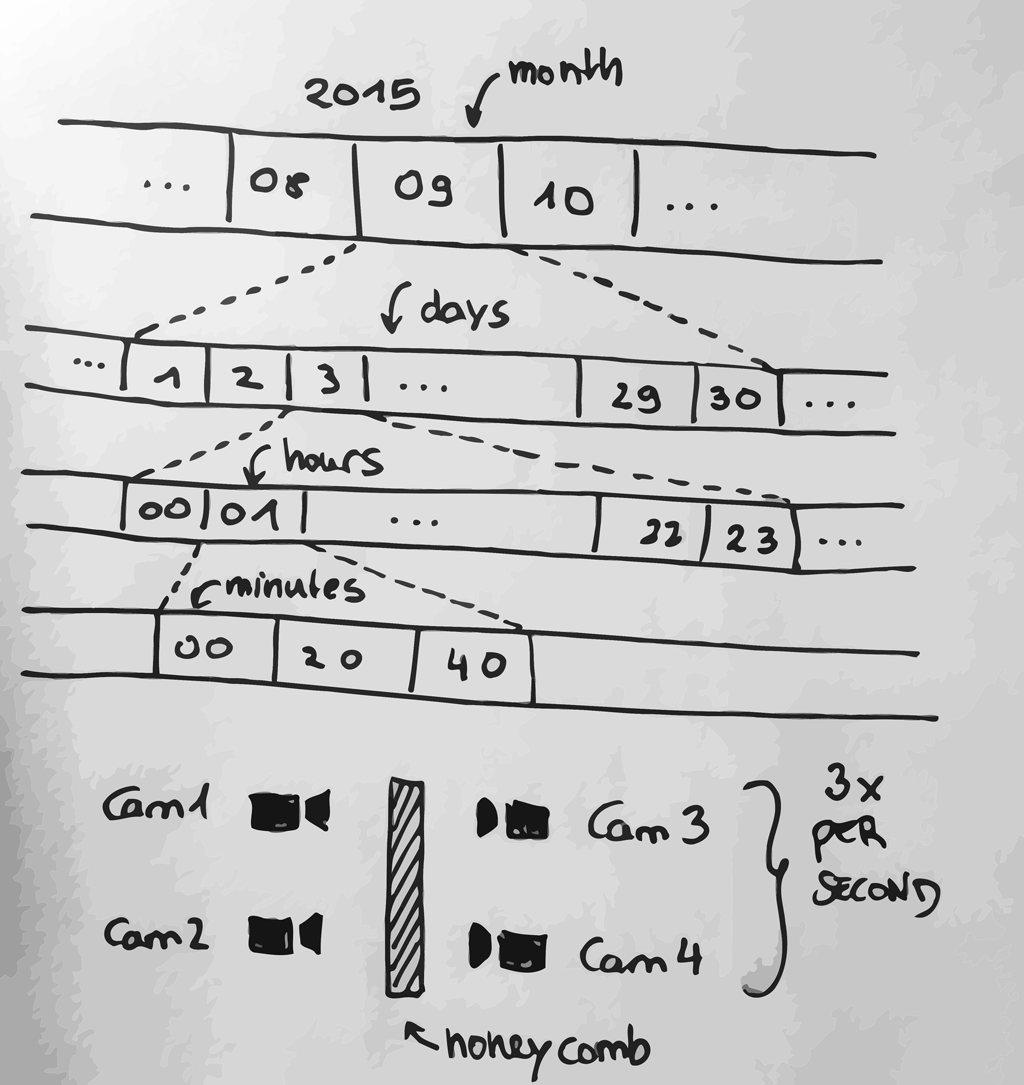 2015 month
... 08 09 10 ...
days
... 1 2 3 ... 29 30 ...
hours
00 01 ... 22 23 ...
minutes
00 20 40
Cam 1 Cam 3
Cam 2 Cam 4
3x
PER
SECOND
honey comb